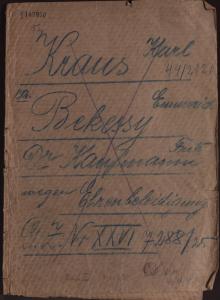 Kraus Karl
ca.
Bekessy Emmerich
Dr Kaufmann Fritz
wegen Ehrenbeleidigung
Nr XXVI 7288/25